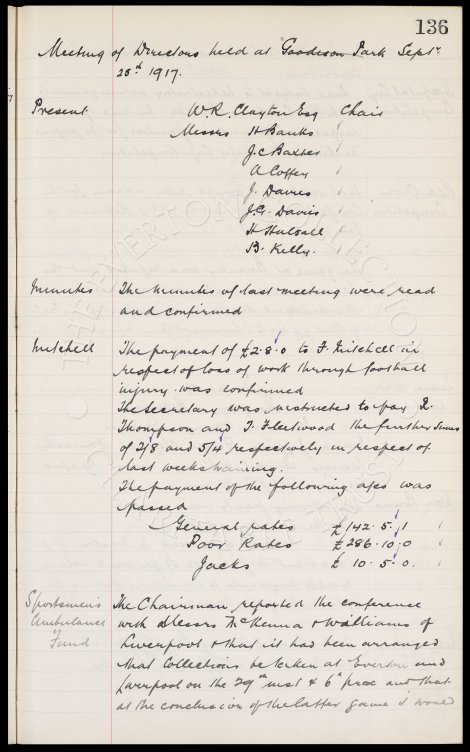 136
Meeting of Directors held at Goodison Park Sept.
25th 1917.
Present W.R. Clayton Esq Chair
Messrs H Banks
J.C Baxter
A Coffey
J. Davies
J.G. Davies
H Halsall
B. Kelly.
Minutes The minutes of last meeting were read
and confirmed
Mitchell The payment of £2.8.0 to F. Mitchell in
respect of loss of work through football
injury was confirmed
The Secretary was instructed to pay R.
Thompson and T. Fleetwood the further sums
of 2/8 and 5/4 respectively in respect of
last weeks training.
The payment of the following a/cs was
passed
General rates £142.5.1
Poor Rates £286.10.0
Jacks £10.5.0.
Sportsmen's The Chairman reported the conference
Ambulance with Messrs McKenna & Williams of
Fund Liverpool & that it had been arranged
that Collections be taken at Everton and
Liverpool on the 29th inst & 6th prox and that
at the conclusion of the latter game it would
THE EVERTON COLLECTION